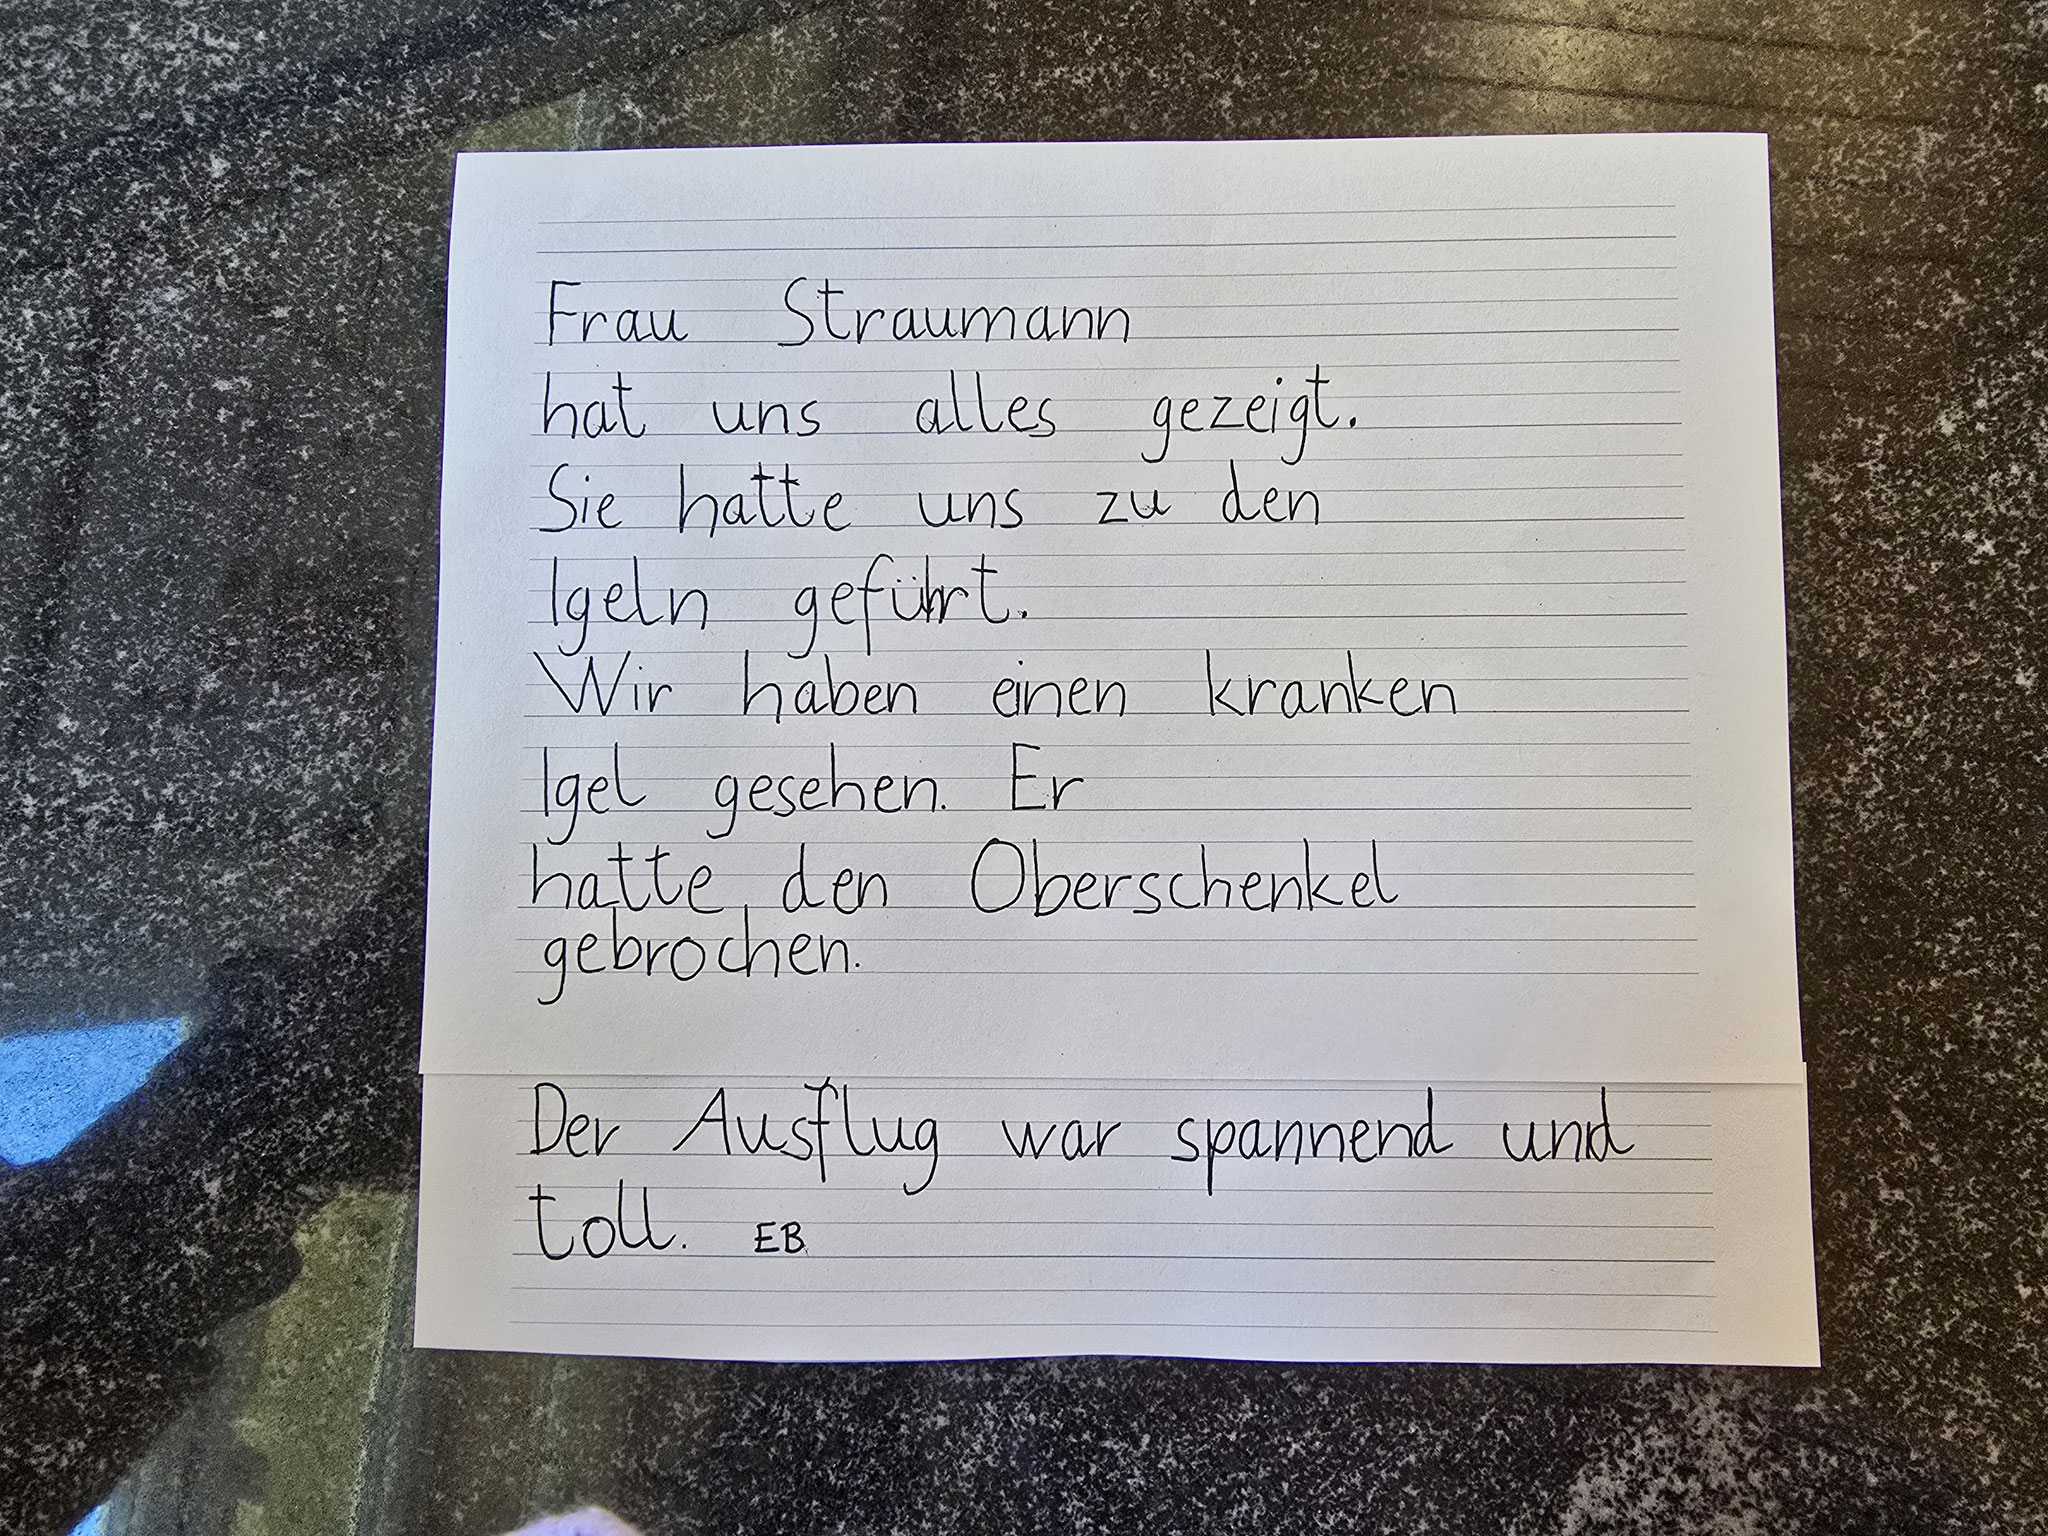 Frau Straumann
hat uns alles gezeigt.
Sie hatte uns zu den
Igeln geführt.
Wir haben einen kranken
Igel gesehen. Er
hatte den Oberschenkel
gebrochen.
Der Ausflug war spannend und
toll. EB